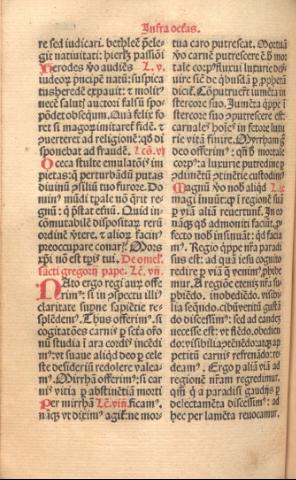 Infra octas.
re sed iudicari. bethleē p̄ele-
git natiuitati: hierlz̄ passiōi
Herodes v̄o audiēs L. v.
iudeoꝝ p̄ncipē natū: suspica
tus heredē expauit: ⁊ molit̉
necē
auctori falsū spo-
pōdet obseqm̄. Quā felix fo
ret si magoꝝ imitaret̉ fidē. ⁊
ad religionē: qđ di
sponebat ad fraudē. Lc̄o. vi
O ceca stulte emulatōis im
pietas: q̄ perturbādū putas
diuinū p̄siliū tuo furore. Do
min̉ mūdi
rege nō q̄rit re-
gnū: q̄ p̄stat et̄nū. Quid in-
cōmutabilē dispositaꝝ rerū
ordinē v̓tere. ⁊ alioꝝ facin̉
preoccupare conar̉? Mors
xp̄i nō est tꝑis tui. De omel̓.
sancti gregorij pape. Lc̄. vij.
Nato ergo regi auꝝ offe-
rim̉: si in p̄spectu illỉ
claritate supne sapiētie re-
splēdem̉. Thus offerim̉. si
cogitatōes carnis ꝑ sctā orō
nū studia ī ara cordis incēdi
m̉: vt suaue aliqd deo ꝑ cele
ste desideriū redolere valea-
m̉. Mirrhā offerim̉: si car
nis vitia ꝑ abstinētiā morti
Per mirrhā Lc̄. viij. ficam̉.
nāqꝫ vt dixim̉ agit̉: ne mor-
tua caro putrescat. Mortuā
v̄o carnē putrescere ē: h̄ mor
tale corp̉ fluxui luxurie des̓-
uire sic̄ de q̄busdā ꝑ ꝓphetā
dicit̉. Cōputruer̄t iumēta in
stercore suo. Iumēta qppe ī
stercore suo ꝯputrescere est:
carnales hoīes in fetore luxu
rie vitā finire. Mirrhā gͦ
deo offerim̉. qn̄ h̄ mortale
corp̉: a luxurie putredine ꝑ
Magnū v̄o nob̄ aliqd L. ix
magi innuūt: qꝫ ī regionē suā
ꝑ viā aliā reuertunt̉. In eo
nāqꝫ qđ admoniti faciūt, ꝓ-
fecto nob̄ insinuāt: qđ facia-
m̉. Regio qppe nr̄a paradi
sus est: ad quā iesu cognito
redire ꝑ viā q̄ venim̉, ꝓhibe
mur. A regiōe etenij nr̄a su-
pbiēdo. inobediēdo. visibi-
lia seq̄ndo. cibū vetitū gustā
do discessim̉: sed ad eandē
necesse est: vt flēdo, obediēn
do: visibilia
ap-
petitū carnis refrenādo: re-
deam̉. Ergo ꝑ aliā viā ad
regionē nr̄am regredimur.
qm̄ q̄ a paradisi gaudijs ꝑ
delectamēta discessim̉: ad
hec per lamēta reuocamur.